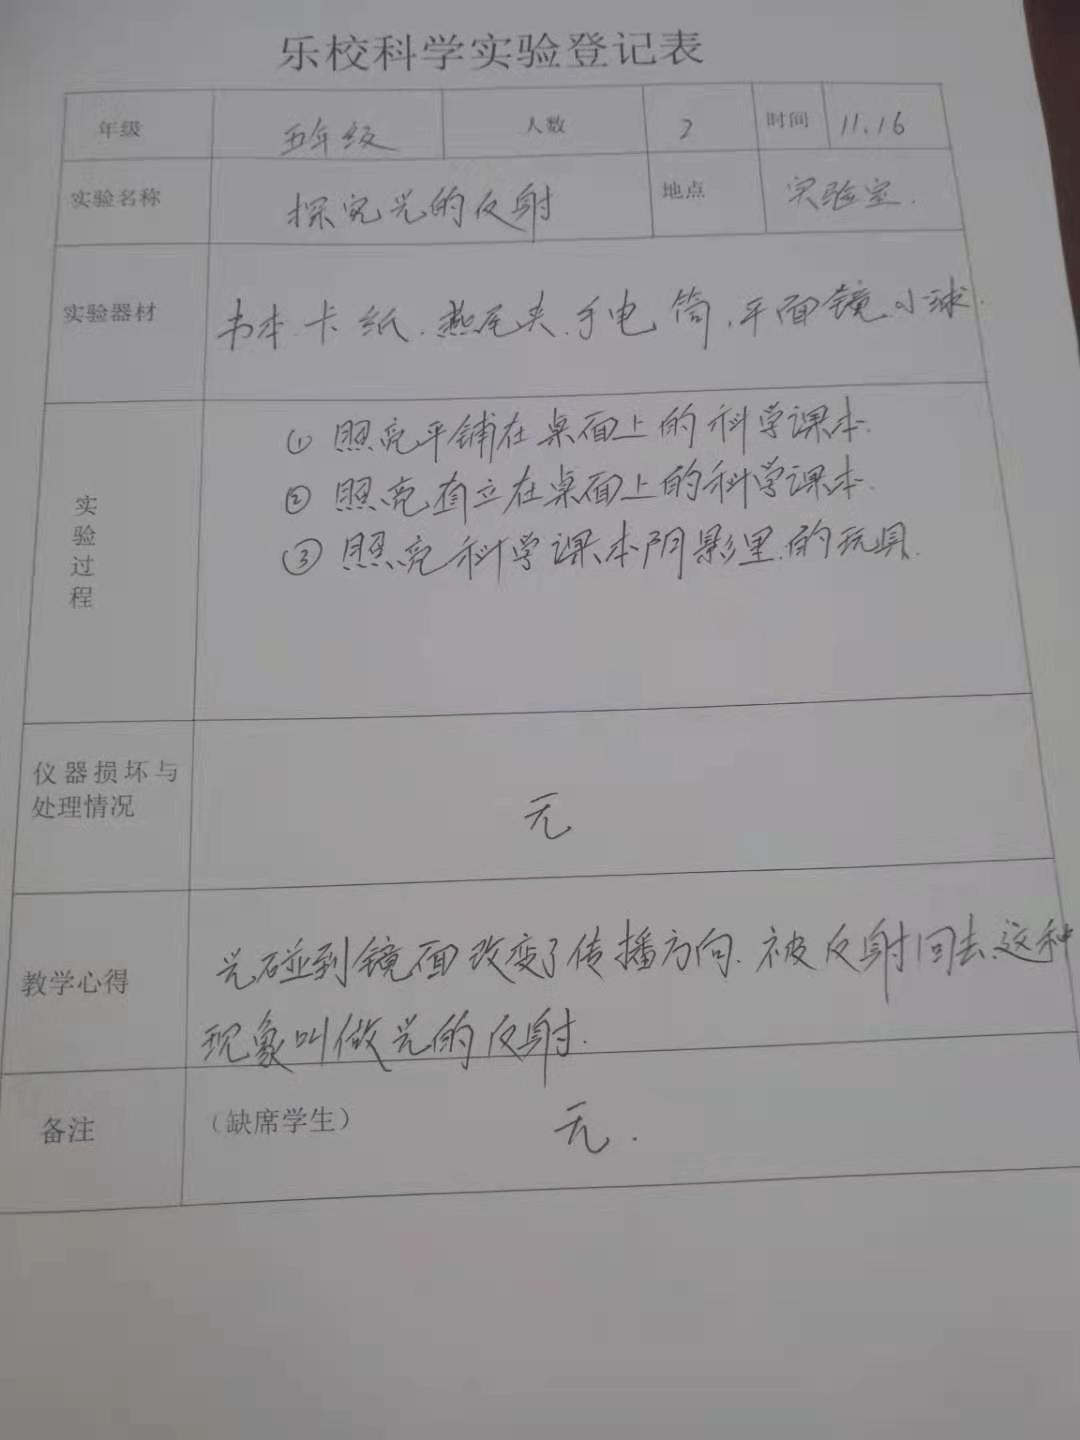 乐校科学实验登记表
年级 五年级 人数 2 时间 11.16
实验名称 探究光的反射 地点 实验室.
实验器材 书本.卡纸.燕尾夹.手电筒.平面镜.小球.
实验过程
①照亮平铺在桌面上的科学课本.
②照亮直立在桌面上的科学课本.
③照亮科学课本阴影里的玩具.
仪器损坏与
处理情况
无
教学心得
光碰到镜面改变了传播方向.被反射回去这种
现象叫做光的反射.
备注 (缺席学生) 无.